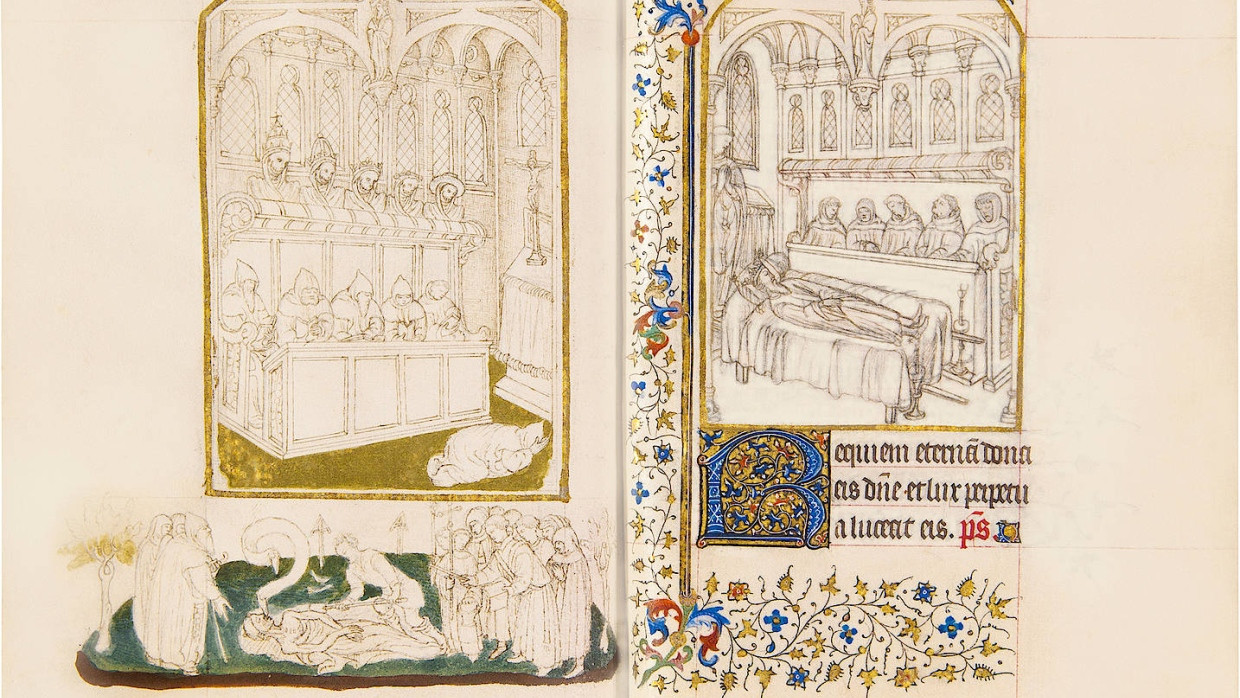 Requiem eternã dona
eis dñe et lux perpetu
a luceat eis. p̃s